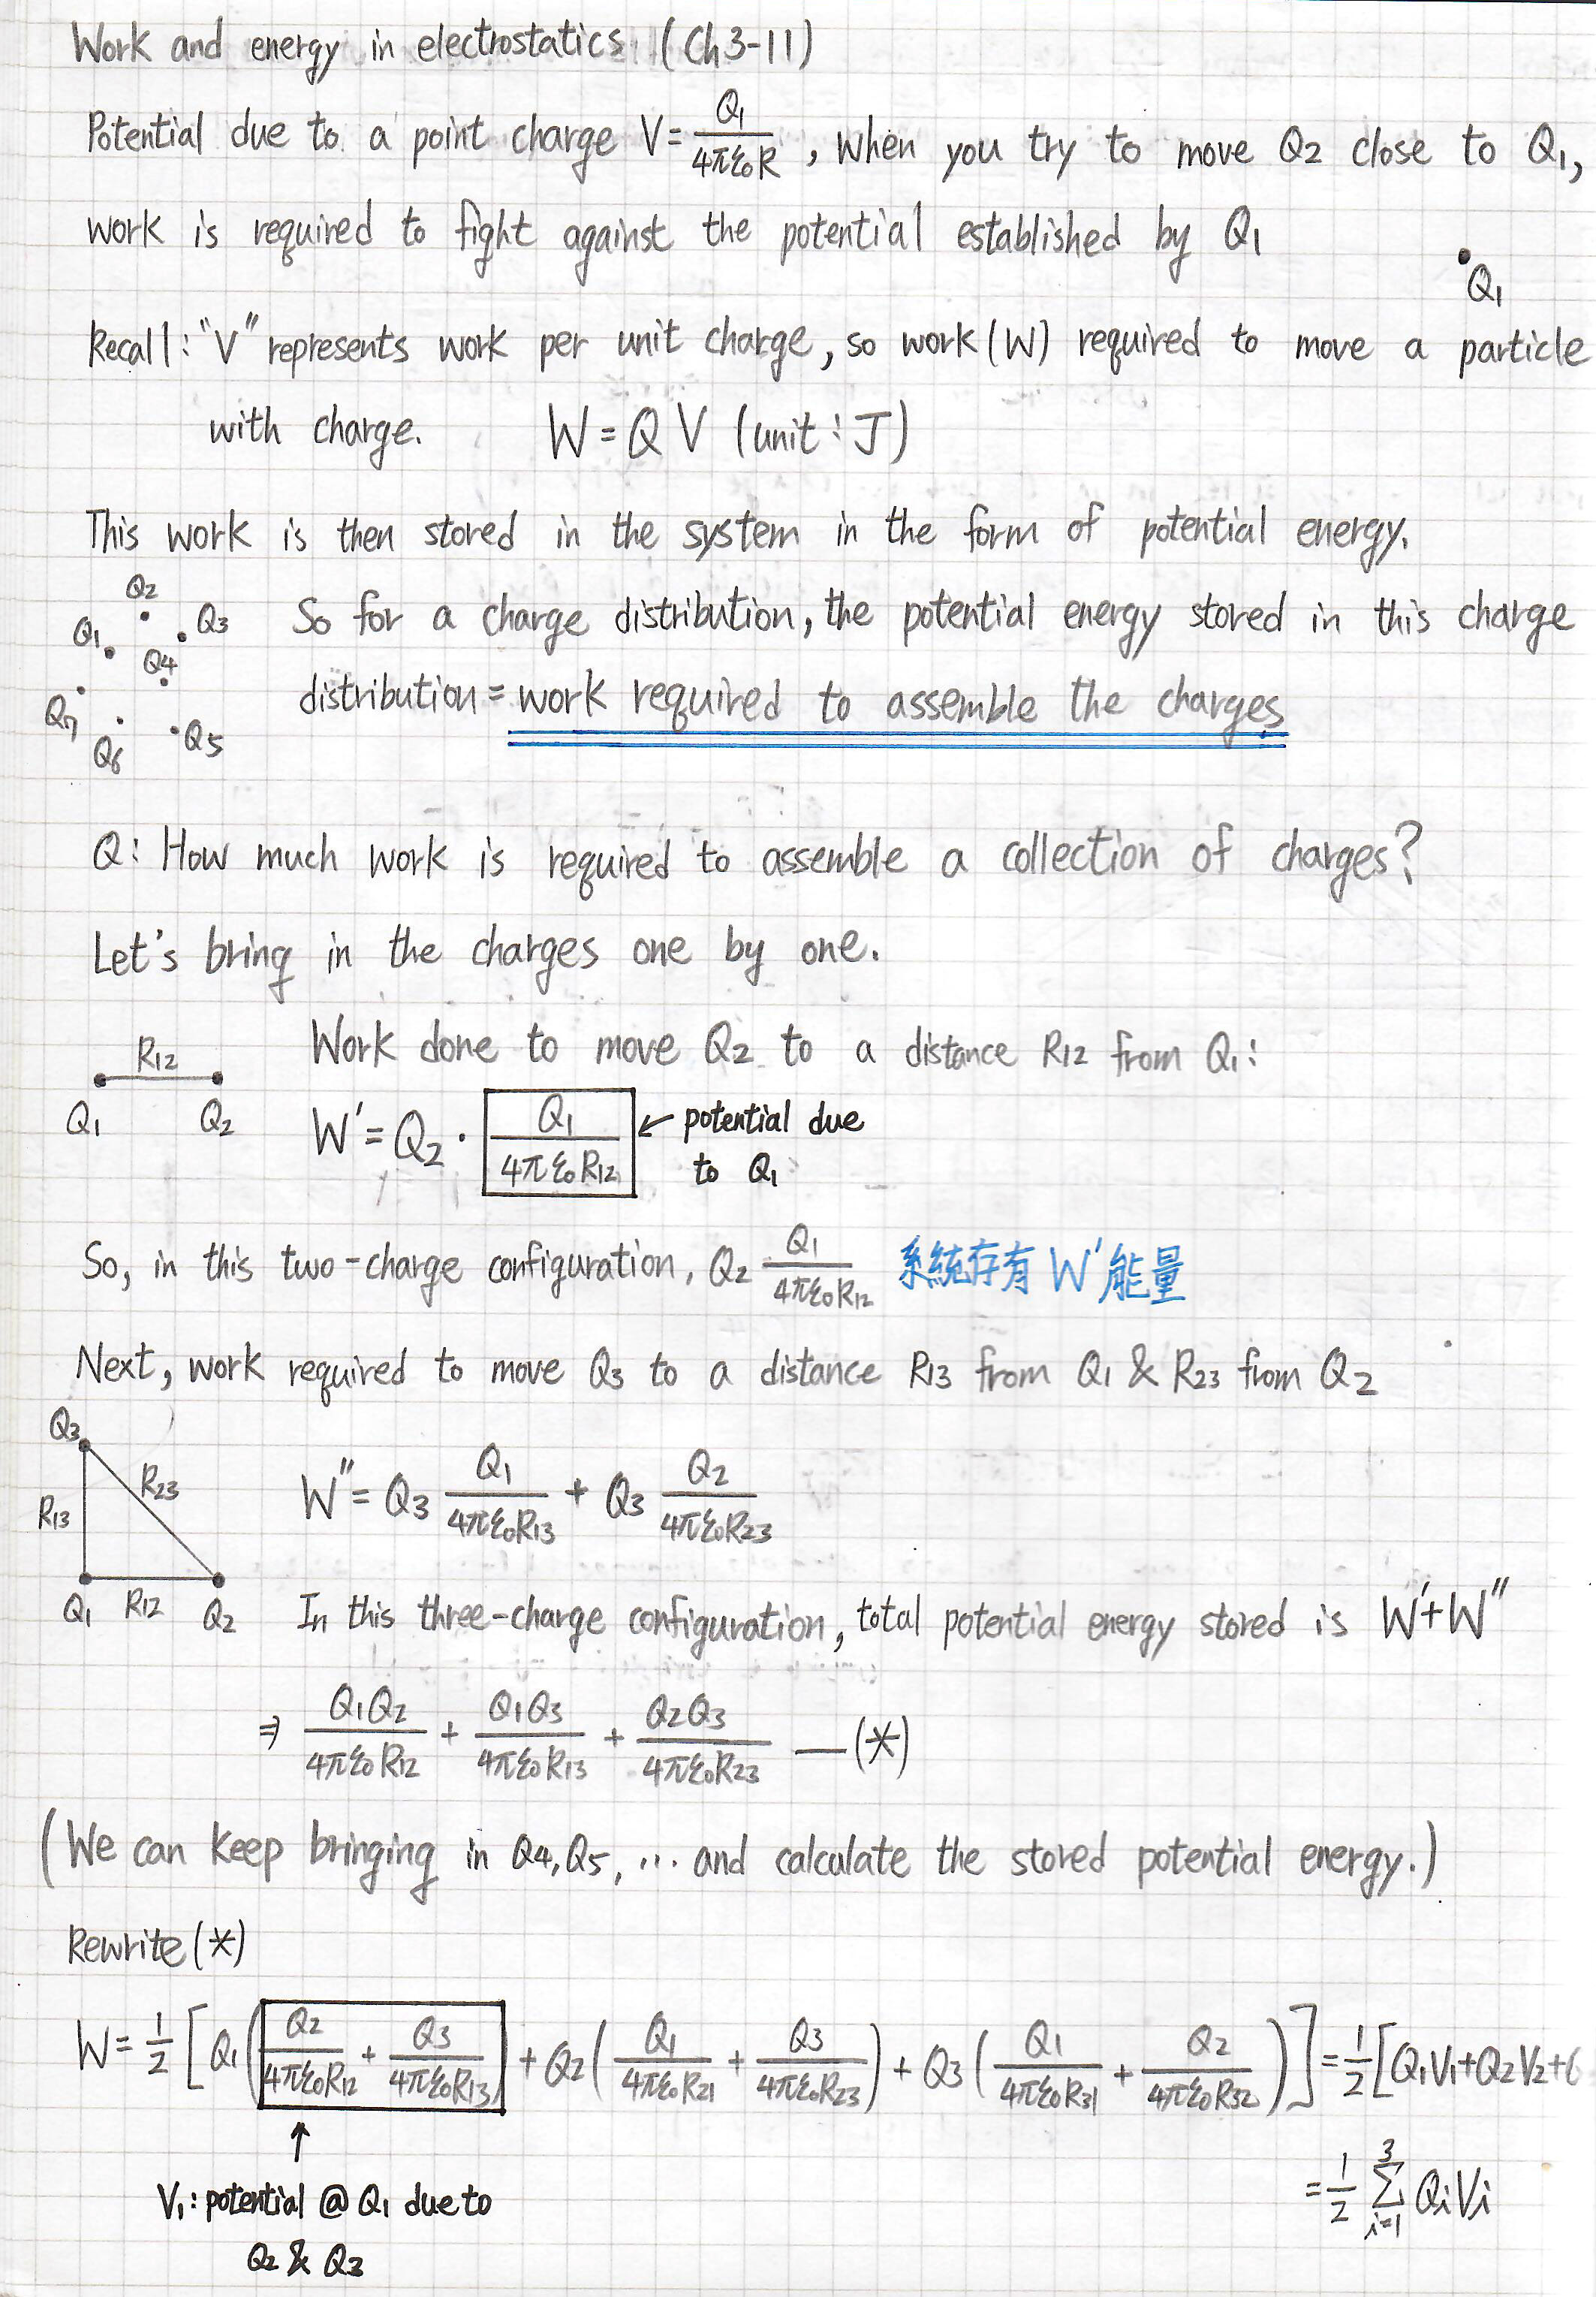 Work and energy in electrostatics (Ch3-11)
Potential due to a point charge V = Q1/(4πε0R), When you try to move Q2 close to Q1,
work is required to fight against the potential established by Q1
Q1
Recall: "V" represents work per unit charge, so work (W) required to move a particle
with charge. W = Q V (unit: J)
This work is then stored in the system in the form of potential energy.
Q1 Q2 Q3 Q4 Q5 Q6 Q7
So for a charge distribution, the potential energy stored in this charge
distribution = work required to assemble the charges
Q: How much work is required to assemble a collection of charges?
Let's bring in the charges one by one.
R12
Q1 Q2
Work done to move Q2 to a distance R12 from Q1:
W' = Q2 · Q1/(4πε0R12) ← potential due
to Q1
So, in this two-charge configuration, Q2 Q1/(4πε0R12) 系統存有 W' 能量
Next, work required to move Q3 to a distance R13 from Q1 & R23 from Q2
Q3
R13 R23
Q1 R12 Q2
W'' = Q3 Q1/(4πε0R13) + Q3 Q2/(4πε0R23)
In this three-charge configuration, total potential energy stored is W'+W''
⇒ Q1Q2/(4πε0R12) + Q1Q3/(4πε0R13) + Q2Q3/(4πε0R23) — (*)
(We can keep bringing in Q4, Q5, ... and calculate the stored potential energy.)
Rewrite (*)
W = 1/2 [Q1(Q2/(4πε0R12) + Q3/(4πε0R13)) + Q2(Q1/(4πε0R21) + Q3/(4πε0R23)) + Q3(Q1/(4πε0R31) + Q2/(4πε0R32))] = 1/2 [Q1V1+Q2V2+
↑
V1: potential @ Q1 due to
Q2 & Q3
= 1/2 Σ_{i=1}^{3} QiVi